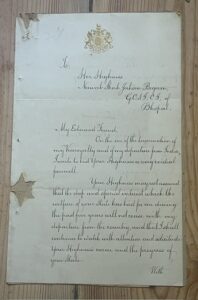 To
Her Highness
Nawab Shah Jehan Begum,
G.C.S.I., C.I., of
Bhopal.
My Esteemed Friend,
On the eve of the termination of
my Viceroyalty and of my departure from India,
I wish to bid Your Highness a very cordial
farewell.
Your Highness may rest assured
that the deep and special interest which the
welfare of your State has had for me during
the past five years will not cease with my
departure from the country, and that I shall
continue to watch with attention and solicitude
Your Highness's career and the progress of
your State.
With